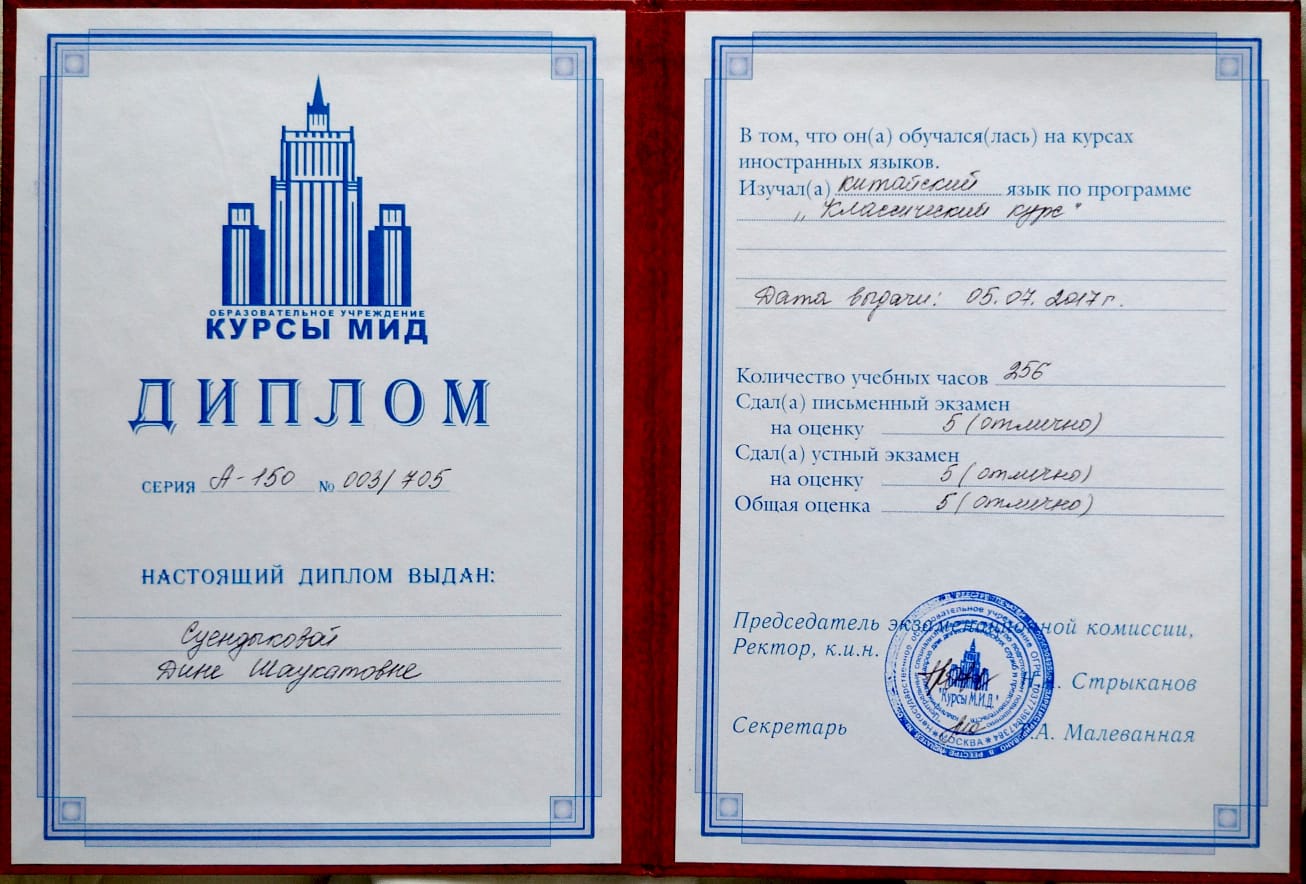 ОБРАЗОВАТЕЛЬНОЕ УЧРЕЖДЕНИЕ
КУРСЫ МИД
ДИПЛОМ
СЕРИЯ А-150 № 003/705
НАСТОЯЩИЙ ДИПЛОМ ВЫДАН:
Суендыковой
Дине Шаукатовне
В том, что он(а) обучался(лась) на курсах
иностранных языков.
Изучал(а) китайский язык по программе
„Классический курс"
Дата выдачи: 05.07.2017г.
Количество учебных часов 256
Сдал(а) письменный экзамен
на оценку 5 (отлично)
Сдал(а) устный экзамен
на оценку 5 (отлично)
Общая оценка 5 (отлично)
Председатель экзаменационной комиссии,
Ректор, к.и.н.
Стрыканов
Секретарь
.А. Малеванная
"Курсы М.И.Д."
МОСКВА